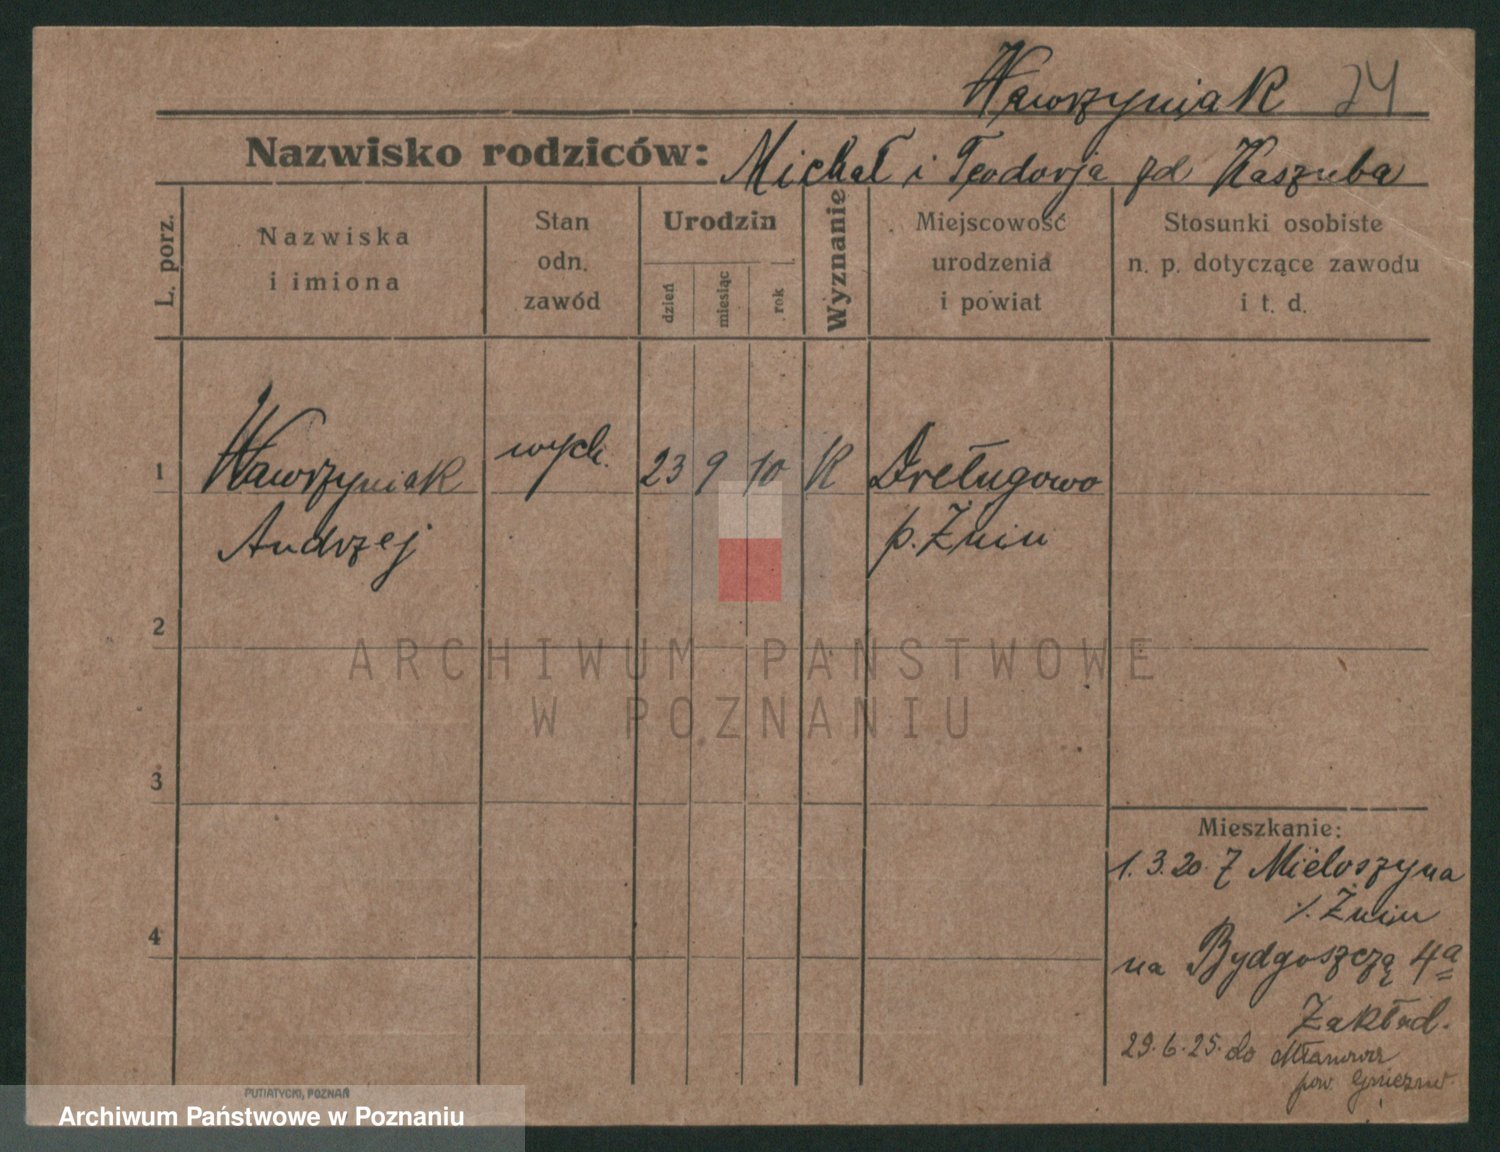 Wawrzyniak 24
Nazwisko rodziców: Michał i Teodorja zd Kaszuba
L. porz.
Nazwiska
i imiona
Stan
odn.
zawód
Urodzin
dzień
miesiąc
rok
Wyznanie
Miejscowość
urodzenia
i powiat
Stosunki osobiste
n. p. dotyczące zawodu
i t. d.
1 Wawrzyniak wych. 23 9 10 K Dreługowo
Andrzej p. Żnin
2
ARCHIWUM PAŃSTWOWE
W POZNANIU
3
Mieszkanie:
1.3.20. Z Mieloszyna
/. Żnin
4
na Bydgoszczą 4a
Zakład.
29.6.25. do
pow.
PUTIATYCKI, POZNAŃ
Archiwum Państwowe w Poznaniu